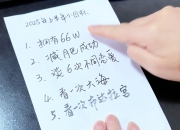 2025年上半年小目标
1. 拥有66W
2. 减肥成功
3. 谈6次不同恋爱
4. 看一次大海
5. 看一次布达拉宫